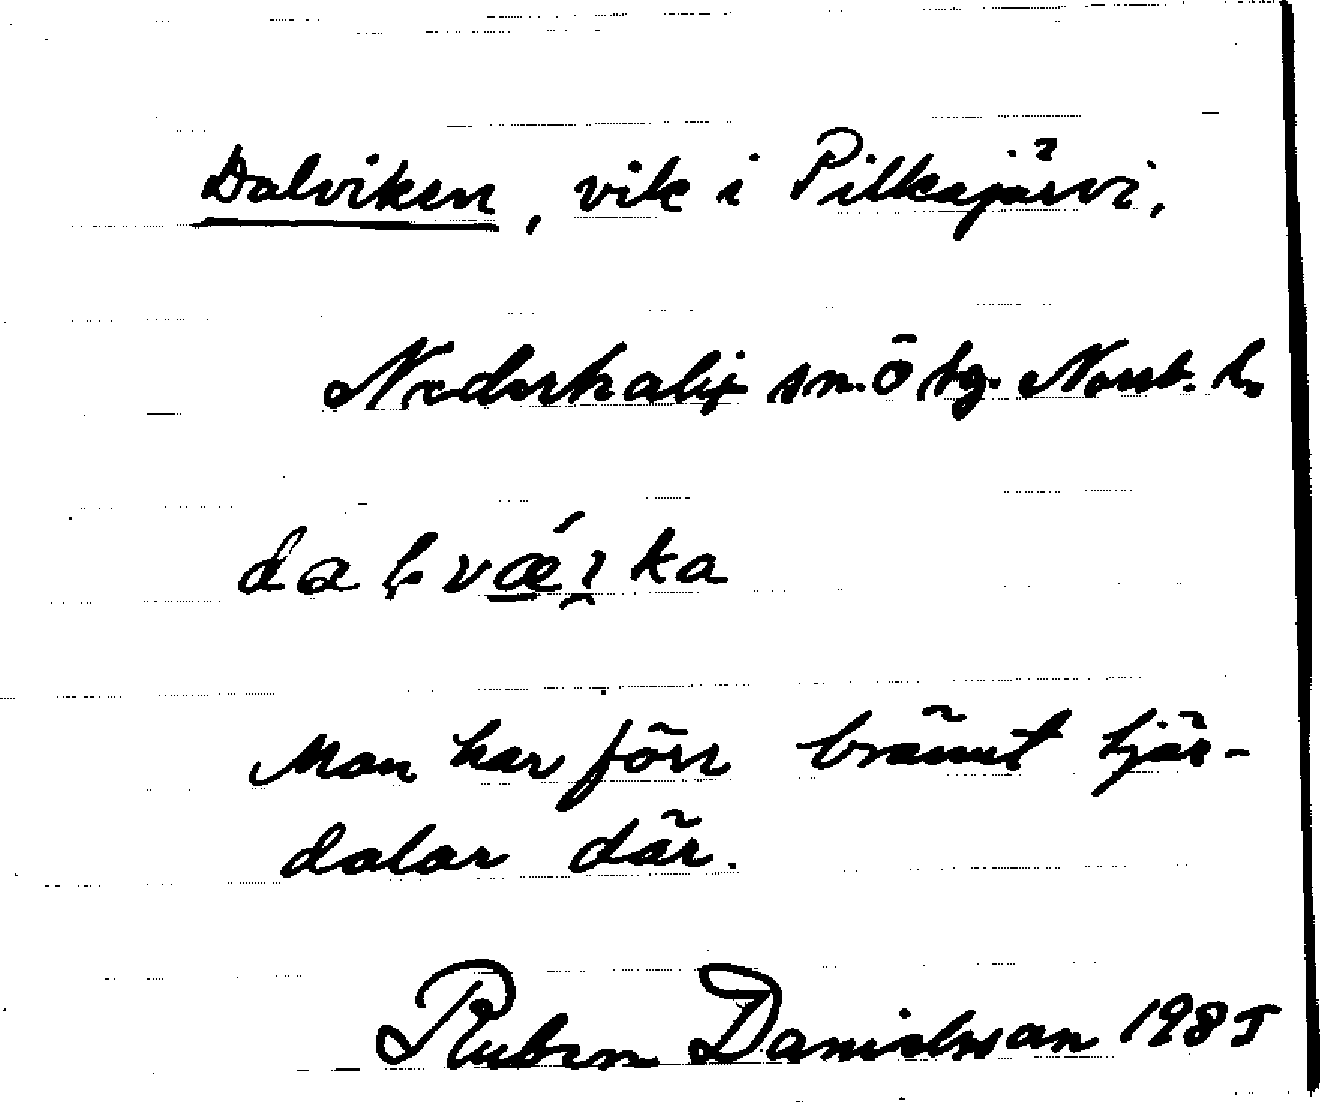 Dalviken, vik i Pilkajärvi,
Nederkalix sn. Ö tg. Norrb. l.
Man har förr bränt tjär-
dalar där.
Ruben Danielsson 1985